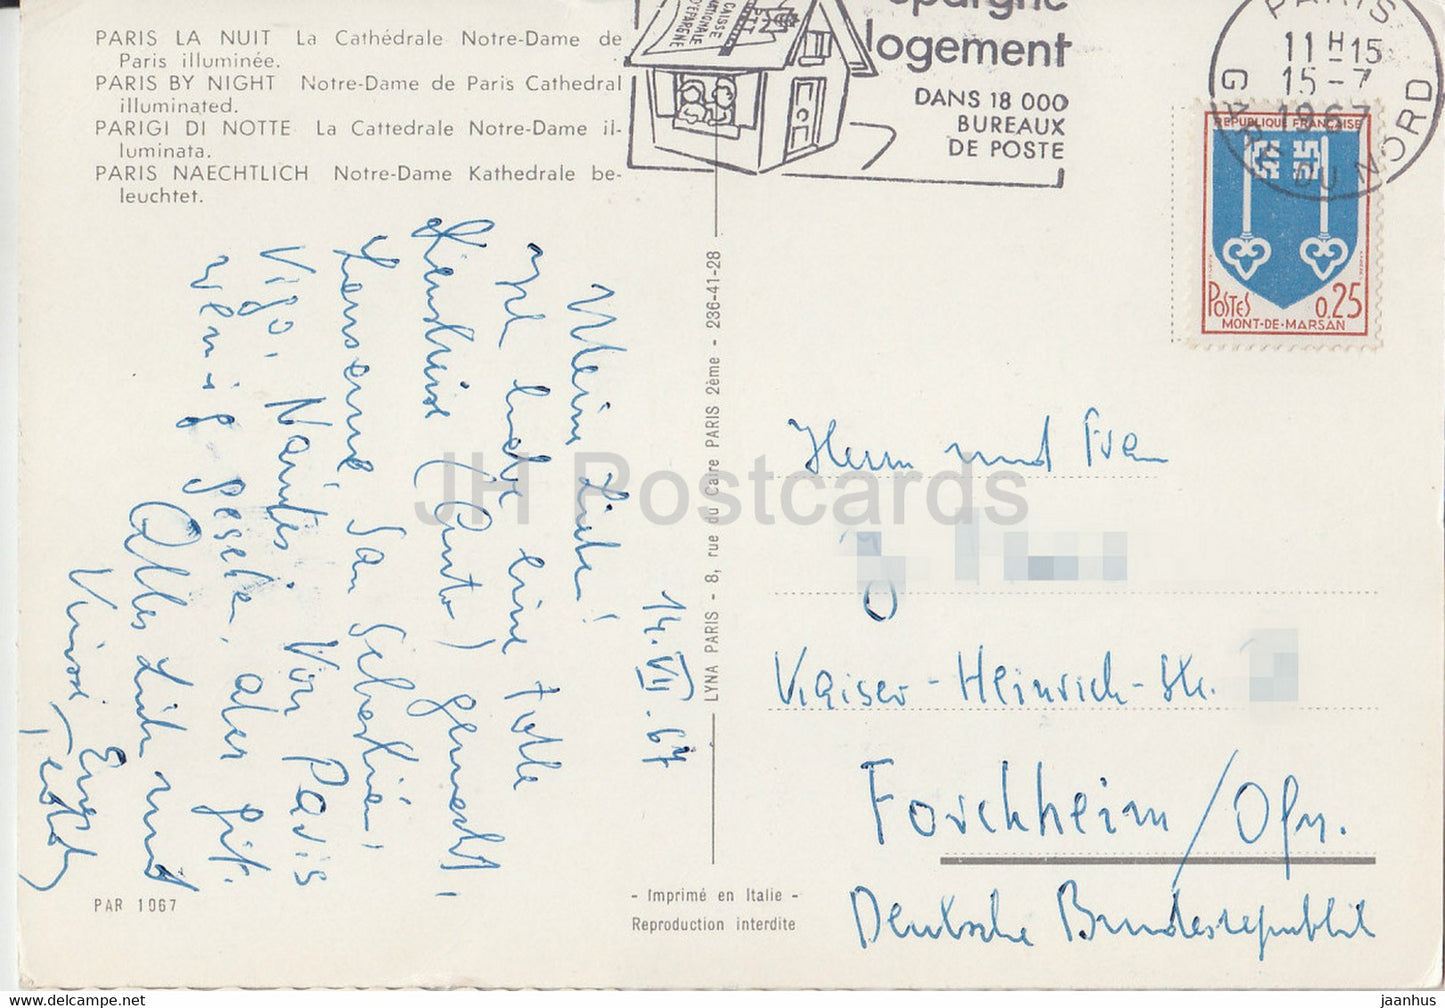 PARIS LA NUIT La Cathédrale Notre-Dame de
Paris illuminée.
PARIS BY NIGHT Notre-Dame de Paris Cathedral
illuminated.
PARIGI DI NOTTE La Cattedrale Notre-Dame il-
luminata.
PARIS NAECHTLICH Notre-Dame Kathedrale be-
leuchtet.
CAISSE
NATIONALE
D'EPARGNE
PTT
épargne
logement
DANS 18 000
BUREAUX
DE POSTE
PARIS
11 H 15
15 - 7
1967
GARE DU NORD
REPUBLIQUE FRANÇAISE
POSTES
0.25
MONT-DE-MARSAN
14. VII. 67
Meine Lieben!
habe eine tolle
(Auto) gemacht,
Lausanne, San Sebastián,
Vigo, Nantes. Von Paris
wenig gesehen, aber gut.
Alles Liebe und
LYNA PARIS - 8, rue du Caire PARIS 2ème - 236-41-28
Herrn und Frau
Kaiser-Heinrich-Str.
Forchheim/Ofr.
Deutsche Bundesrepublik
PAR 1067
- Imprimé en Italie -
Reproduction interdite
JH Postcards
www.delcampe.net
jaanhus